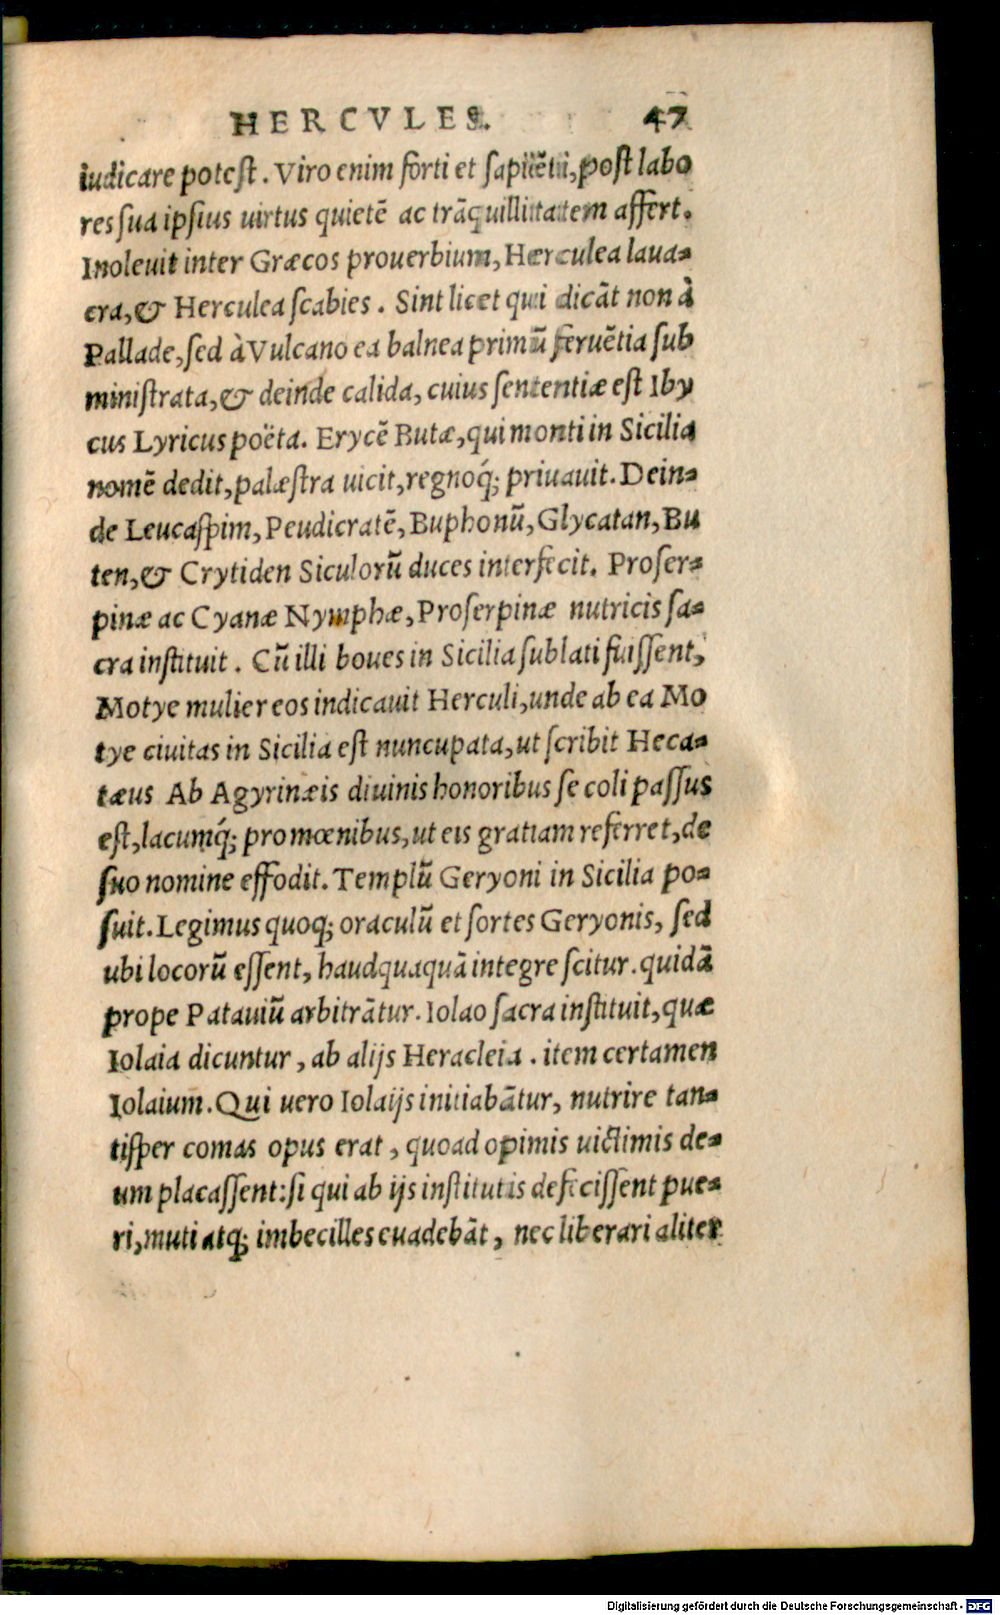 HERCVLES. 47
iudicare potest. Viro enim forti et sapiẽti, post labo
res sua ipsius uirtus quietẽ ac trãquillitatem affert.
Inoleuit inter Græcos prouerbium, Herculea laua-
cra, & Herculea scabies. Sint licet qui dicãt non à
Pallade, sed à Vulcano ea balnea primũ feruẽtia sub
ministrata, & deinde calida, cuius sententiæ est Iby
cus Lyricus poëta. Erycẽ Butæ, qui monti in Sicilia
nomẽ dedit, palæstra uicit, regnoq́; priuauit. Dein-
de Leucaspim, Peudicratẽ, Buphonũ, Glycatan, Bu
ten, & Crytiden Siculorũ duces interfecit. Proser-
pinæ ac Cyanæ Nymphæ, Proserpinæ nutricis sa-
cra instituit. Cũ illi boues in Sicilia sublati fuissent,
Motye mulier eos indicauit Herculi, unde ab ea Mo
tye ciuitas in Sicilia est nuncupata, ut scribit Heca-
tæus Ab Agyrinæis diuinis honoribus se coli passus
est, lacumq́; pro mœnibus, ut eis gratiam referret, de
suo nomine effodit. Templũ Geryoni in Sicilia po-
suit. Legimus quoq; oraculũ et sortes Geryonis, sed
ubi locorũ essent, haudquaquã integre scitur. quidã
prope Patauiũ arbitrãtur. Iolao sacra instituit, quæ
Iolaia dicuntur, ab alijs Heracleia. item certamen
Iolaium. Qui uero Iolaijs initiabãtur, nutrire tan-
tisper comas opus erat, quoad opimis uictimis de-
um placassent: si qui ab ijs institutis defecissent pue-
ri, muti atq; imbecilles euadebãt, nec liberari aliter
Digitalisierung gefördert durch die Deutsche Forschungsgemeinschaft - DFG